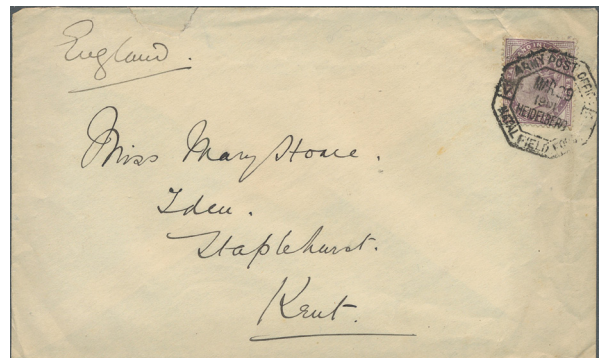 England.
ARMY POST OFFICE
MAR 29
1901
HEIDELBERG
NATAL FIELD FORCE
Miss Mary Hoare.
Iden.
Staplehurst.
Kent.